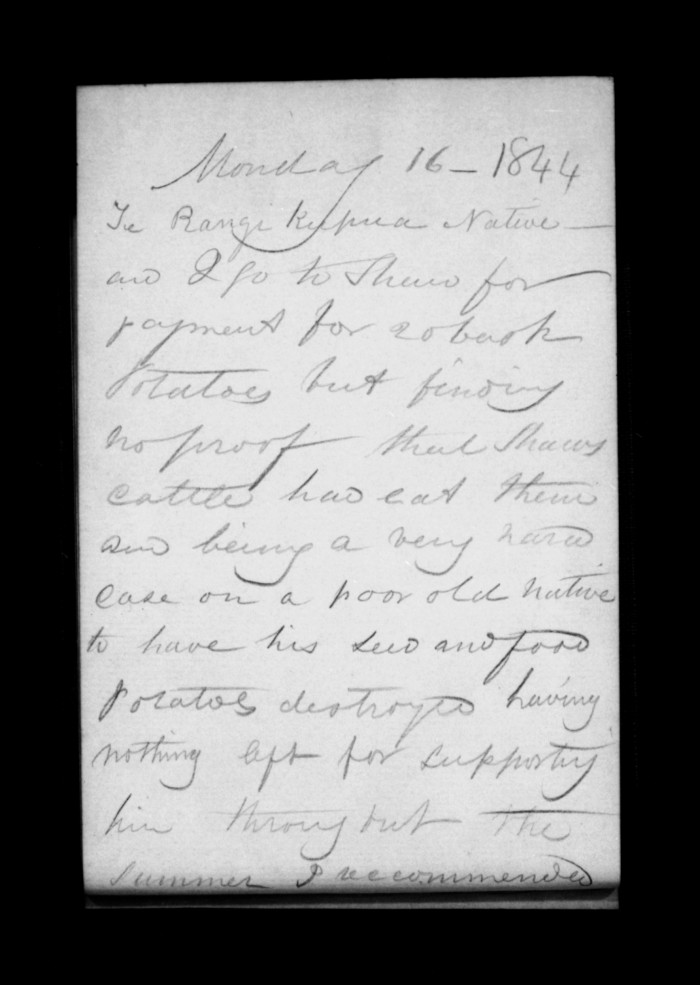 Monday 16 - 1844
Te Rangi Kupua Native -
and I go to Shaw for
payment for 20 bask
Potatoes but finding
no proof that Shaws
cattle had eat them
and being a very hard
case on a poor old native
to have his seed and food
potatoes destroyed having
nothing left for supporting
him throughout the
summer I recommended